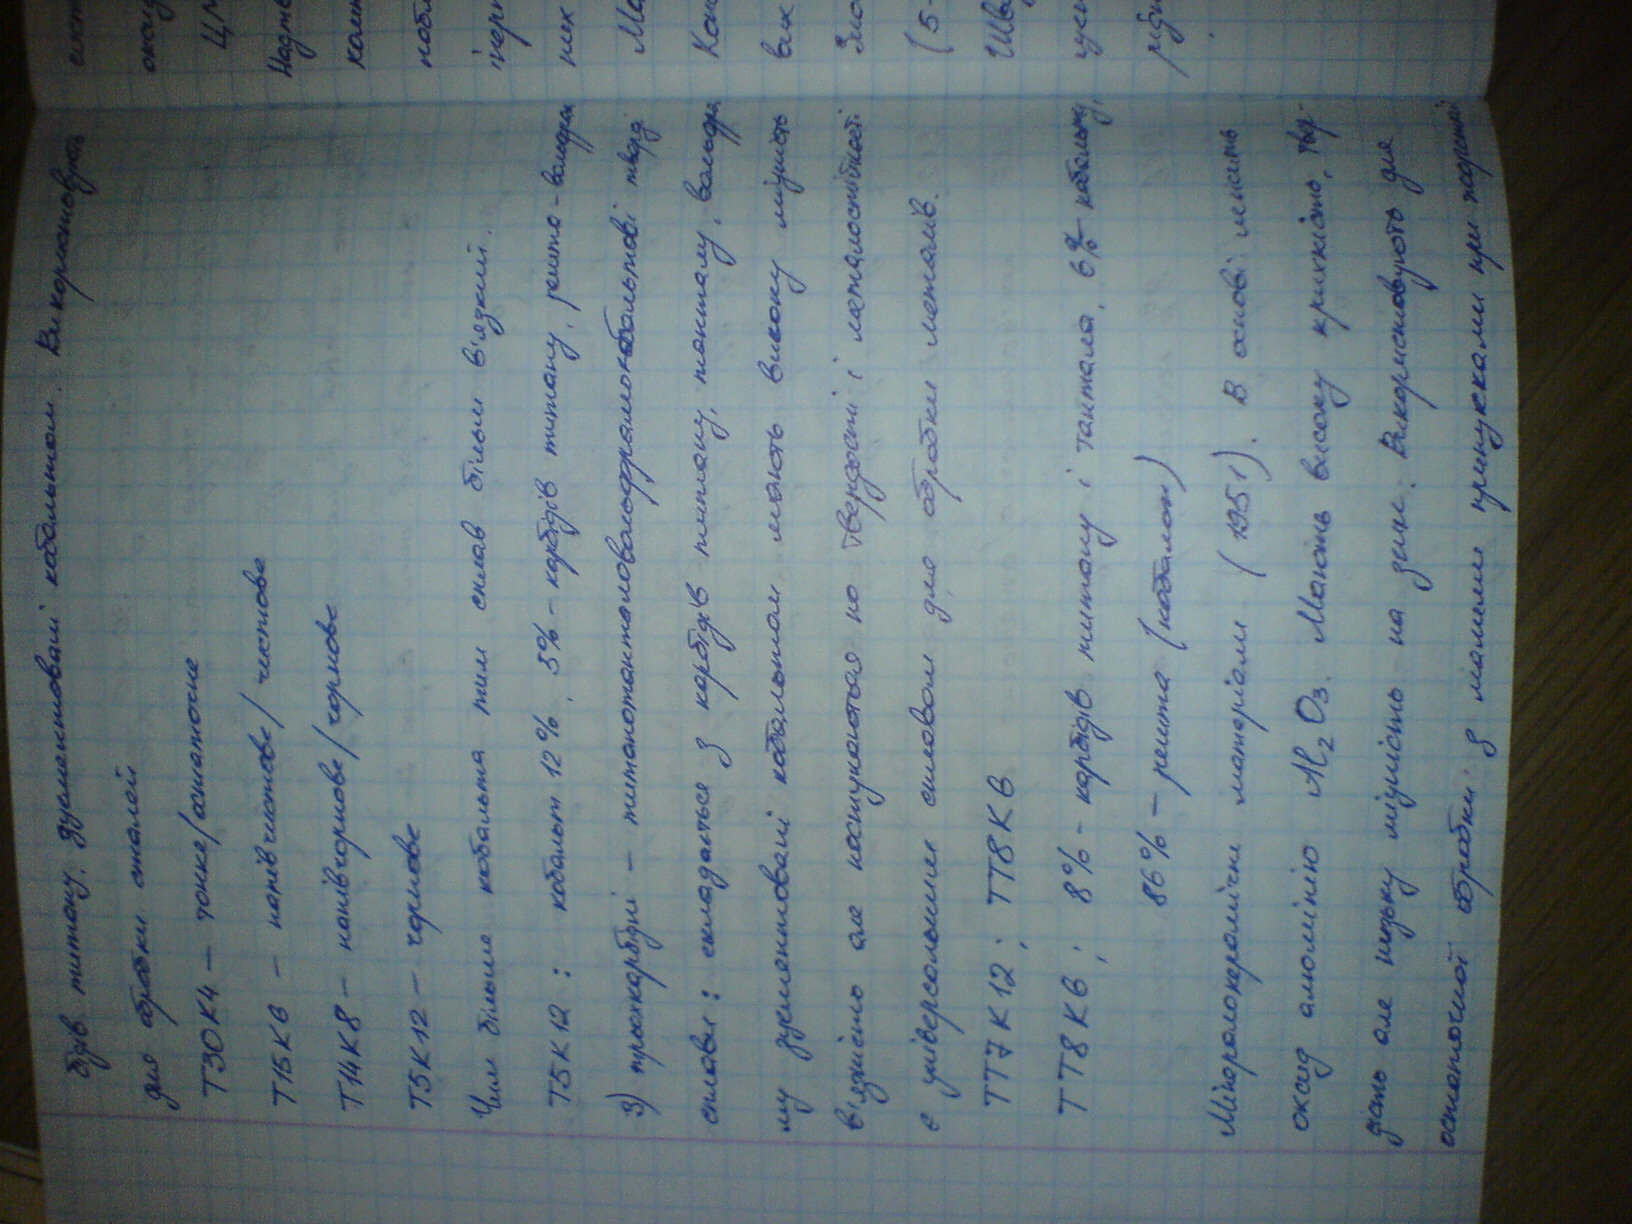 бідів титану, зцементовані кобальтом. Використовують
для обробки сталей
Т30К4 – тонке/остаточне
Т15К6 – напівчистове/чистове
Т14К8 – напівчорнове/чорнове
Т5К12 – чорнове
Чим більше кобальта тим сплав більш в'язкий.
Т5К12 : кобальт 12%, 5% - карбідів титану, решта - вольфрам
3) трьохкарбідні – титанотанталовольфрамокобальтові тверді
сплави : складаються з карбідів титану, танталу, вольфра
му зцементовані кобальтом мають високу міцність
відмінно але поступаються по твердості і металостійкості
є універсальними сплавами для обробки металів.
ТТ7К12 ; ТТ8К6
ТТ8К6 ; 8% - карбідів титану і тантала, 6% - кобальту,
86% – решта (кобальт)
Мінералокерамічні матеріали (1951). В основі лежить
оксид алюмінію Al₂O₃. Мають високу крихкість, твер-
дість але низьку міцність на згин. Використовують для
остаточної обробки з малими припусками при жорсткій
екст
окси
ЦМ
Надтв
комп
набл
них
Ма
Кон
вик
Зно
(5-
Шви
різн